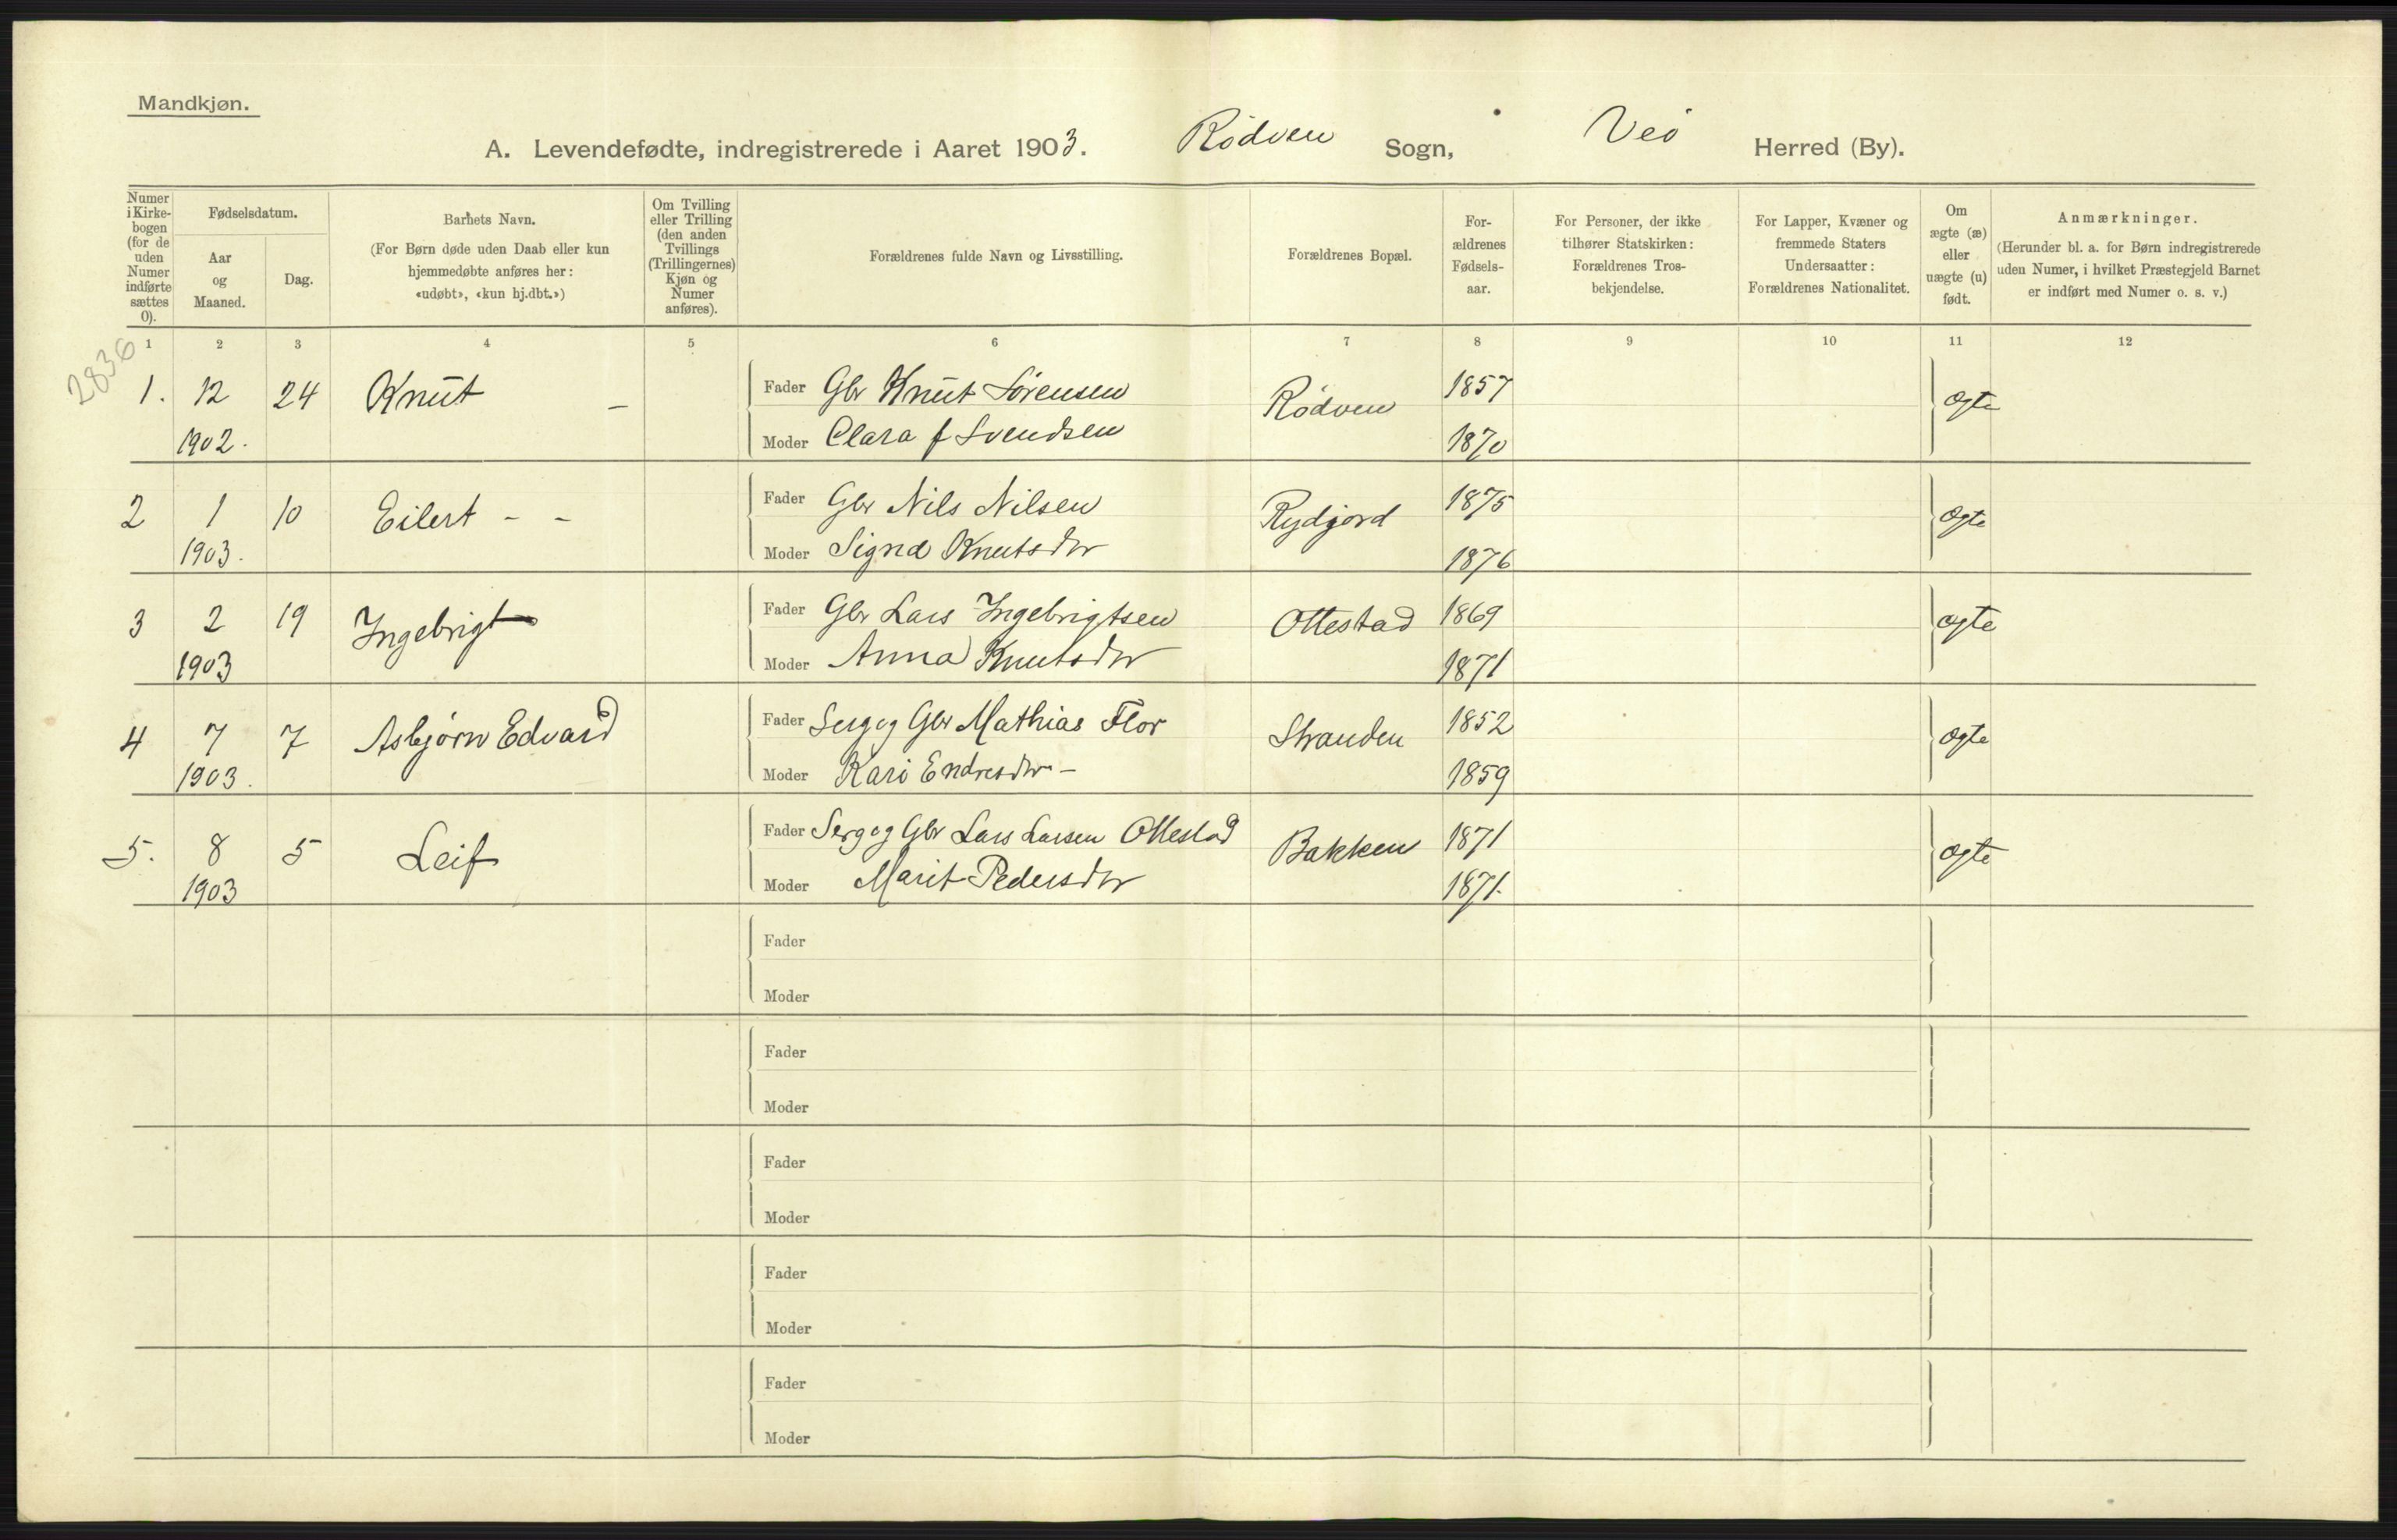 Mandkjøn.
A. Levendefødte, indregistrerede i Aaret 1903. Rødven Sogn, Veø Herred (By).
Numer i Kirke-bogen (for de uden Numer indførte sættes 0).
Fødselsdatum.
Aar og Maaned.
Dag.
Barnets Navn.
(For Børn døde uden Daab eller kun hjemmedøbte anføres her: «udøbt», «kun hj.dbt.»)
Om Tvilling eller Trilling (den anden Tvillings (Trillingernes) Kjøn og Numer anføres).
Forældrenes fulde Navn og Livsstilling.
Forældrenes Bopæl.
For-ældrenes Fødsels-aar.
For Personer, der ikke tilhører Statskirken: Forældrenes Tros-bekjendelse.
For Lapper, Kvæner og fremmede Staters Undersaatter: Forældrenes Nationalitet.
Om ægte (æ) eller uægte (u) født.
Anmærkninger.
(Herunder bl. a. for Børn indregistrerede uden Numer, i hvilket Præstegjeld Barnet er indført med Numer o. s. v.)
1 2 3 4 5 6 7 8 9 10 11 12
2836
1. 12 24 Knut – Fader Gbr Knut Sørensen Rødven 1857 ægte
1902. Moder Clara f Svendsen 1870
2 1 10 Eilert - - Fader Gbr Nils Nilsen Rydjord 1875 ægte
1903. Moder Signd Knutsdtr 1876
3 2 19 Ingebrigt Fader Gbr Lars Ingebrigtsen Ottestad 1869 ægte
1903 Moder Anna Knutsdtr 1871
4 7 7 Asbjørn Edvard Fader Serg og Gbr Mathias Flor Stranden 1852 ægte
1903. Moder Kari Endresdtr – 1859
5. 8 5 Leif Fader Serg og Gbr Lars Larsen Ottestad Bakken 1871 ægte
1903 Moder Marit Pedersdtr 1871.
Fader
Moder
Fader
Moder
Fader
Moder
Fader
Moder
Fader
Moder